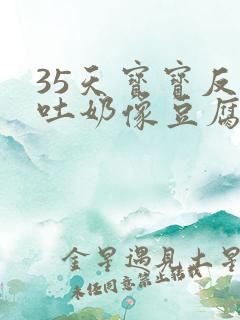 35天宝宝反
吐奶像豆腐
金星遇见土星
未经同意禁止转载